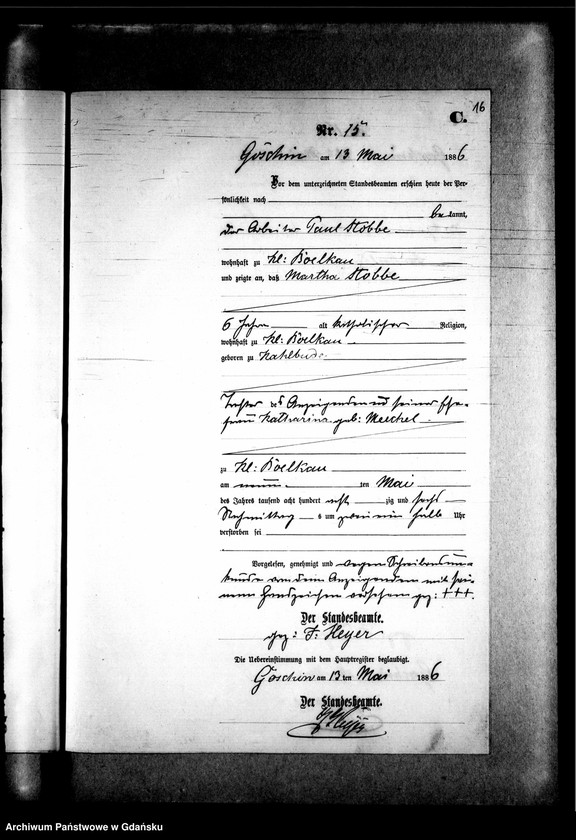 16
C.
Nr. 15.
Göschin am 13 Mai 1886
Vor dem unterzeichneten Standesbeamten erschien heute der Per-
sönlichkeit nach
be kannt,
der Arbeiter Paul Stobbe
wohnhaft zu Kl: Boelkau
und zeigte an, daß Martha Stobbe
6 Jahre alt katholischer Religion,
wohnhaft zu Kl: Boelkau
geboren zu Kahlbude
Tochter des Anzeigenden und seiner Ehe-
frau Katharina geb: Meichel
zu Kl: Boelkau
am neun ten Mai
des Jahres tausend acht hundert acht zig und sechs
Nachmittag s um zwei ein halb Uhr
verstorben sei
Vorgelesen, genehmigt und wegen Schreibensun-
kunde von dem Anzeigenden mit sei-
nem Handzeichen versehen gez: +++.
Der Standesbeamte.
gez: F. Heyer
Die Uebereinstimmung mit dem Hauptregister beglaubigt.
Göschin am 13 ten Mai 1886
Der Standesbeamte.
Heyer
Archiwum Państwowe w Gdańsku